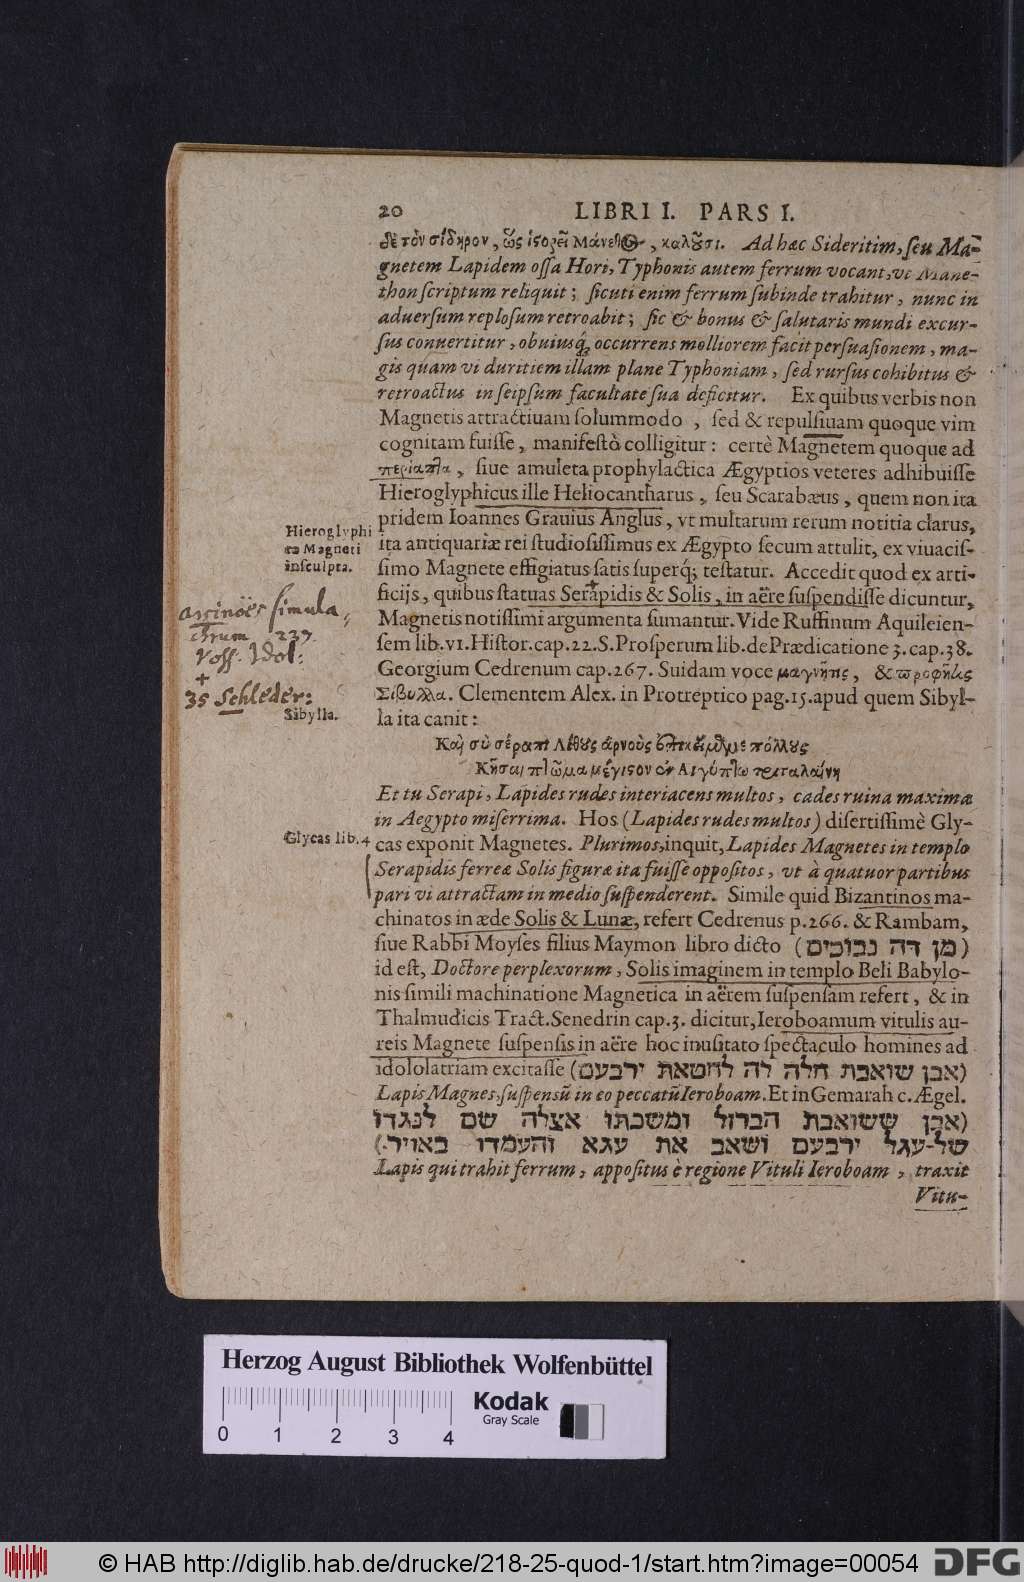 20 LIBRI I. PARS I.
δὲ τὸν σίδηρον, ὥς ἱϛορεῖ Μάνεθος, καλοῦσι. Ad hæc Sideritim, seu Ma-
gnetem Lapidem ossa Hori, Typhonis autem ferrum vocant, vt Mane-
thon scriptum reliquit; sicuti enim ferrum subinde trahitur, nunc in
aduersum replosum retroabit; sic & bonus & salutaris mundi excur-
sus conuertitur, obuiusq́; occurrens molliorem facit persuasionem, ma-
gis quam vi duritiem illam plane Typhoniam, sed rursus cohibitus &
retroactus in seipsum facultate sua deficitur. Ex quibus verbis non
Magnetis attractiuam solummodo, sed & repulsiuam quoque vim
cognitam fuisse, manifestò colligitur: certè Magnetem quoque ad
περίαπτα, siue amuleta prophylactica Ægyptios veteres adhibuisse
Hieroglyphicus ille Heliocantharus, seu Scarabæus, quem non ita
pridem Ioannes Grauius Anglus, vt multarum rerum notitia clarus,
Hieroglyphi
ca Magneti
insculpta.
ita antiquariæ rei studiosissimus ex Ægypto secum attulit, ex viuacis-
simo Magnete effigiatus satis superq́; testatur. Accedit quod ex arti-
ficijs, quibus statuas Serapidis & Solis, in aëre suspendisse dicuntur,
Arsinoës simula,
chrum 237.
Voss. Idol:
+
35 Schleder:
Magnetis notissimi argumenta sumantur. Vide Ruffinum Aquileien-
sem lib. VI. Histor. cap. 22. S. Prosperum lib. de Prædicatione 3. cap. 38.
Georgium Cedrenum cap. 267. Suidam voce μαγνῆτις, & προφῆτις
Σίβυλλα. Clementem Alex. in Protreptico pag. 15. apud quem Sibyl-
Sibylla.
la ita canit:
Καὶ σὺ σέραπι Λίθους ἀρνοὺς ἐπικείμενε πόλλους
Κῆσαι πτῶμα μέγιϛον ἐν Αἰγύπτῳ τριταλαίνῃ
Et tu Serapi, Lapides rudes interiacens multos, cades ruina maxima
in Aegypto miserrima. Hos (Lapides rudes multos) disertissimè Gly-
Glycas lib. 4
cas exponit Magnetes. Plurimos, inquit, Lapides Magnetes in templo
Serapidis ferreæ Solis figuræ ita fuisse oppositos, vt à quatuor partibus
pari vi attractam in medio suspenderent. Simile quid Bizantinos ma-
chinatos in æde Solis & Lunæ, refert Cedrenus p. 266. & Rambam,
siue Rabbi Moyses filius Maymon libro dicto (מן דה נבוכים)
id est, Doctore perplexorum, Solis imaginem in templo Beli Babylo-
nis simili machinatione Magnetica in aërem suspensam refert, & in
Thalmudicis Tract. Senedrin cap. 3. dicitur, Ieroboamum vitulis au-
reis Magnete suspensis in aëre hoc inusitato spectaculo homines ad
idololatriam excitasse (אבן שואבת תלה לה לחטאת ירבעם)
Lapis Magnes, suspensū in eo peccatū Ieroboam. Et in Gemarah c. Ægel.
(אבן ששואבת הברזל ומשכתו אצלה שם לנגדו
של-עגל ירבעם ושאב את עגא והעמדו באויר.)
Lapis qui trahit ferrum, appositus è regione Vituli Ieroboam, traxit
Vitu-
Herzog August Bibliothek Wolfenbüttel
Kodak
Gray Scale
0 1 2 3 4
© HAB http://diglib.hab.de/drucke/218-25-quod-1/start.htm?image=00054
DFG